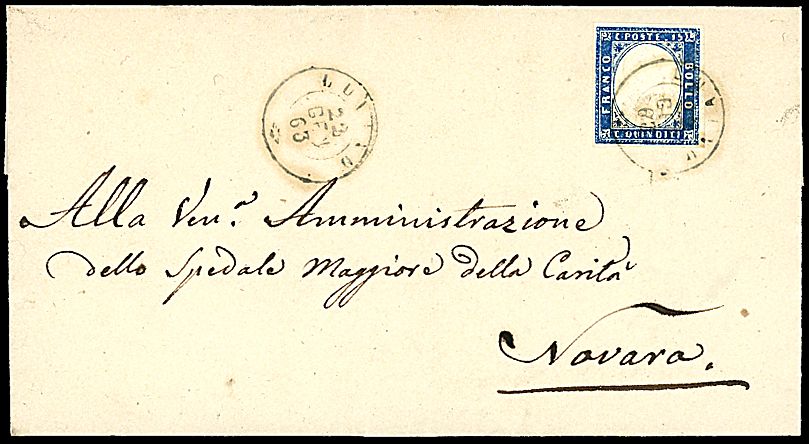 C. POSTE 15
FRANCO
BOLLO
C. QUINDICI
23
GEN
63
Alla Ven.ª Amministrazione
dello Spedale Maggiore della Carità
Novara.